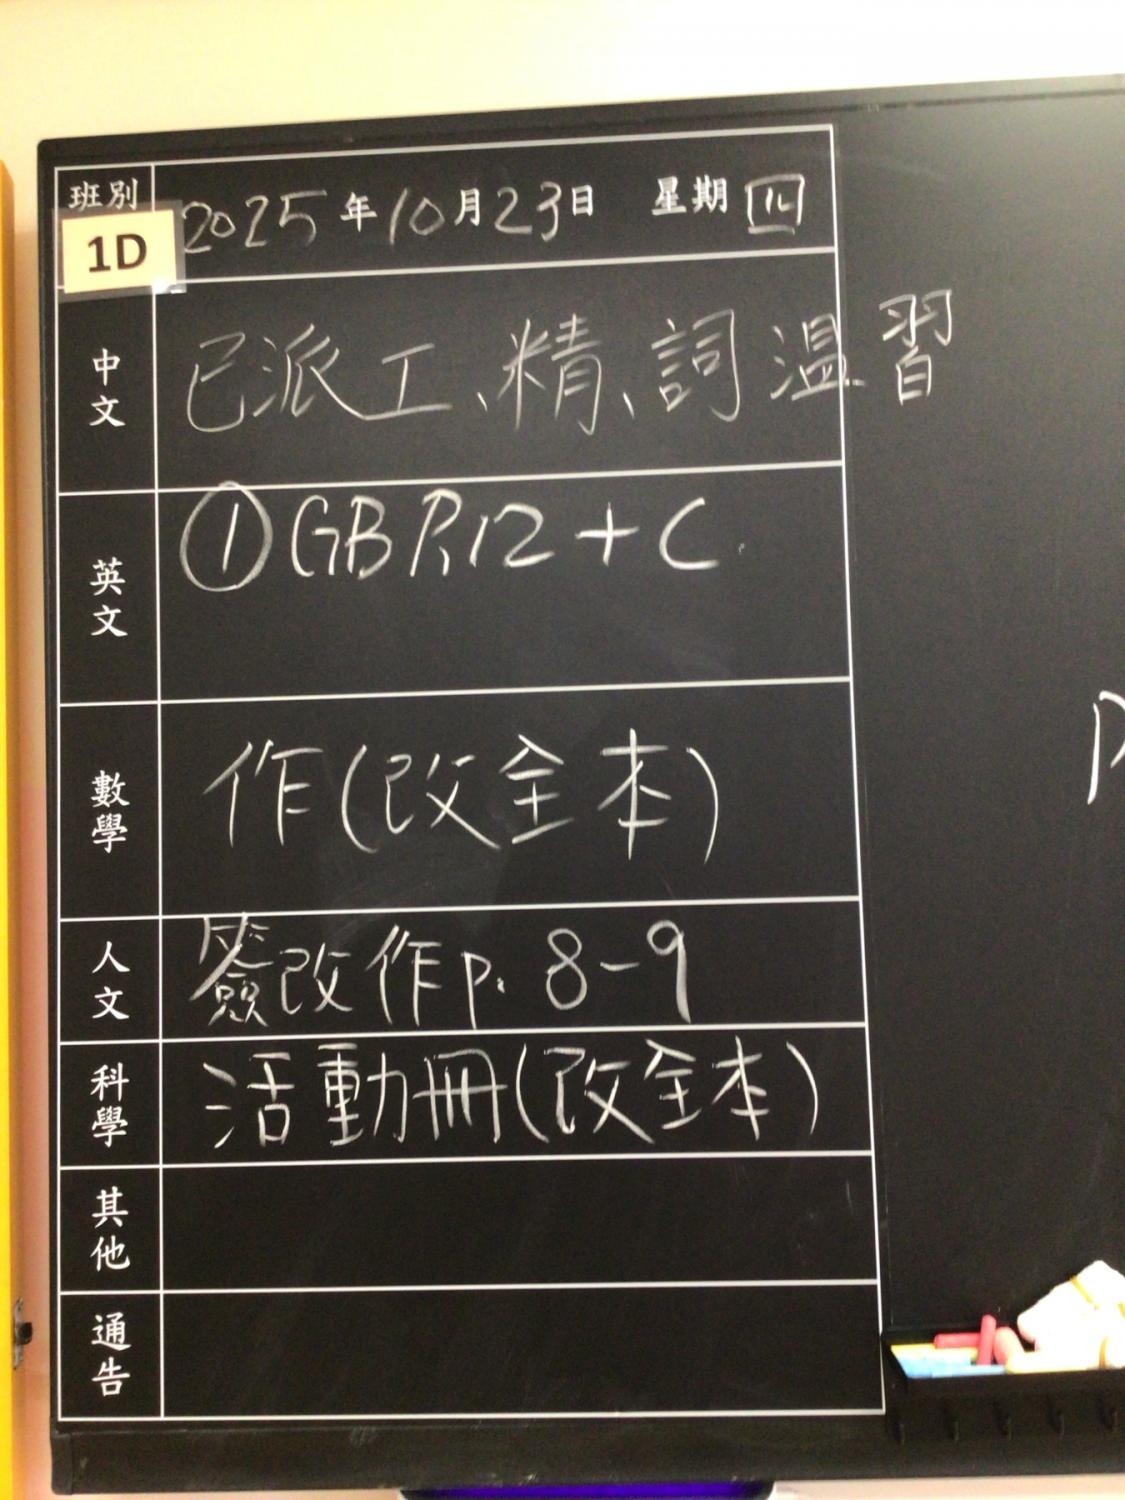 班別 2025年10月23日 星期四
1D
中文 已派工、精、詞溫習
英文 ①GB P.12 + C
數學 作(改全本)
人文 簽改作p. 8-9
科學 活動冊(改全本)
其他
通告